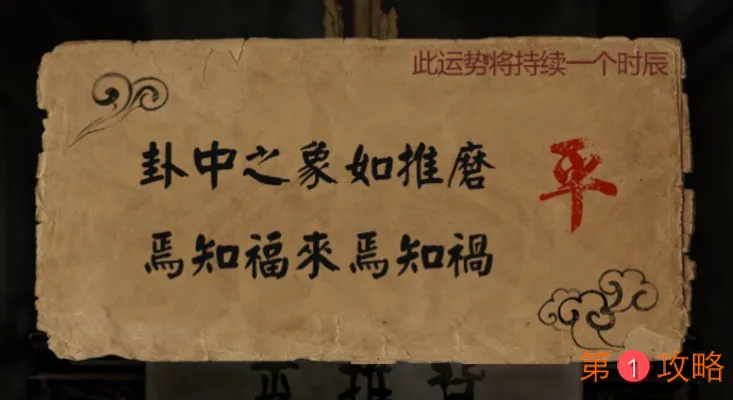 此运势将持续一个时辰
卦中之象如推磨
平
焉知福來焉知禍
第1攻略